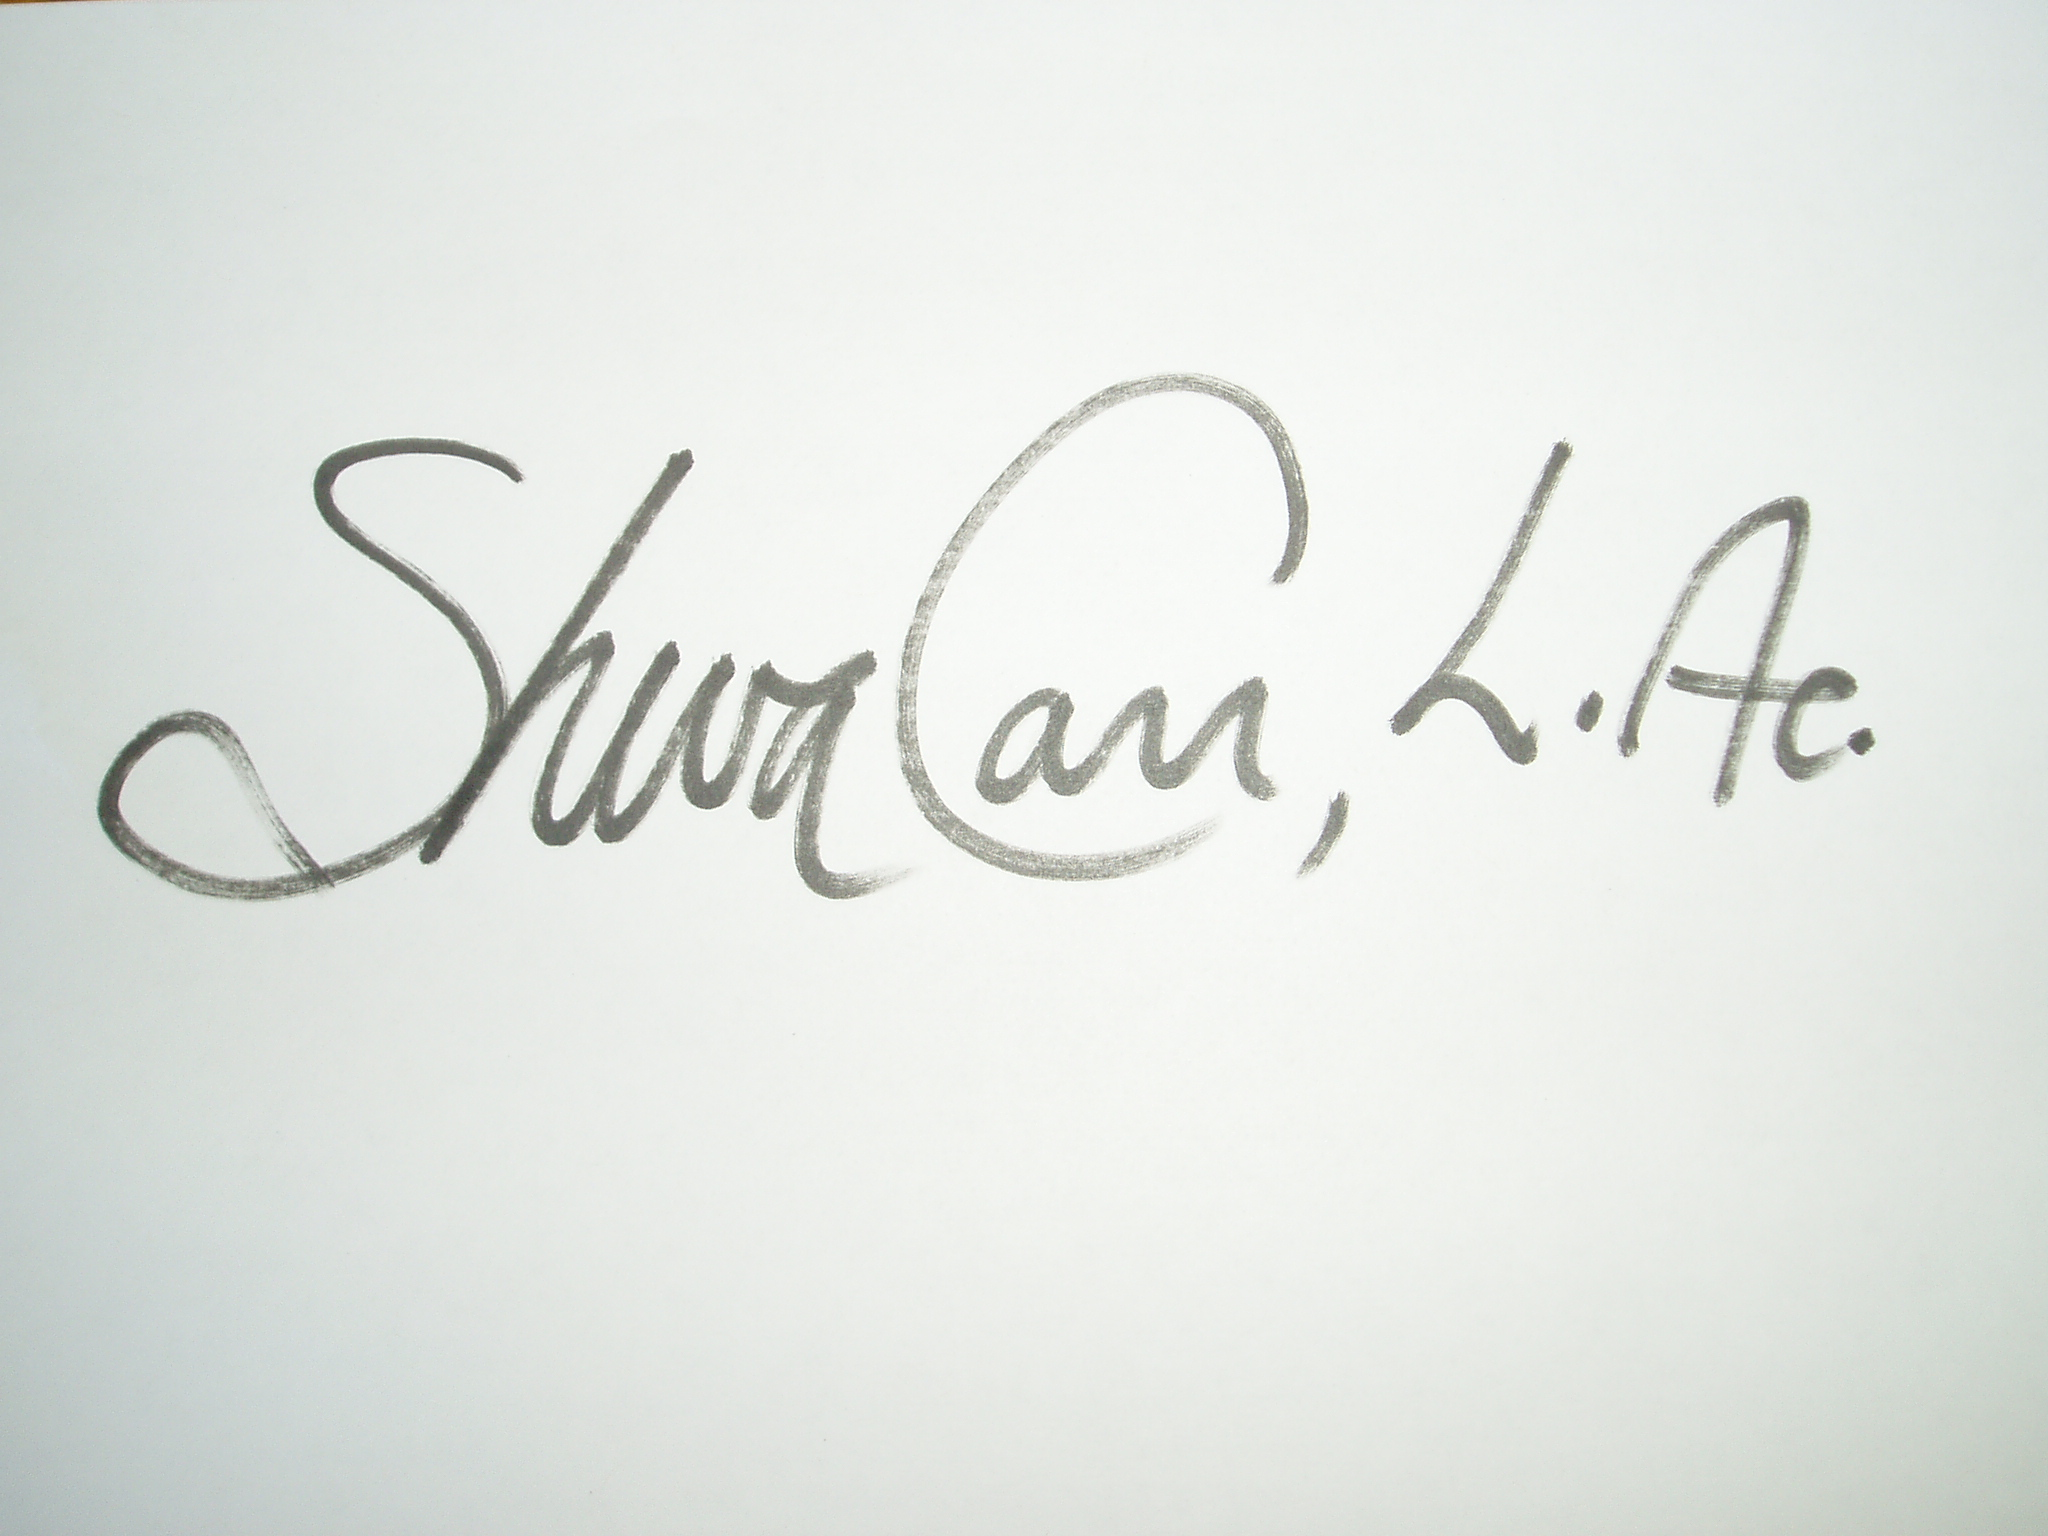 Shuva Carr, L.Ac.